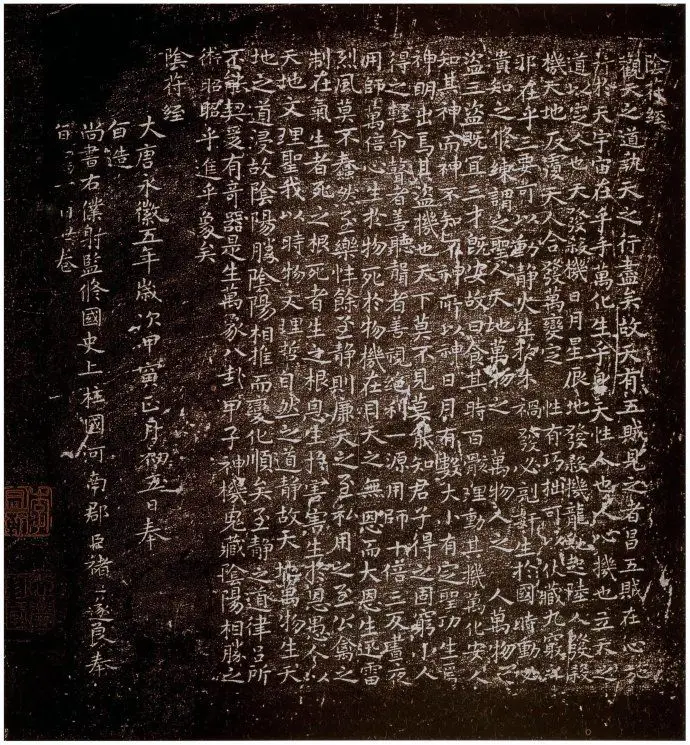 陰符經
觀天之道執天之行盡矣故天有五賊見之者昌五賊在心
行於天宇宙在乎手萬化生乎身天性人也人心機也立天之
道以定人也天發殺機日月星辰地發殺機龍蛇起陸人發殺
機天地反覆天人合發萬變 性有巧拙可以伏藏九竅之
邪在乎三要可以動靜火生於木禍發必剋奸生於國時動必
潰知之修練謂之聖人天地萬物之 萬物人之 人萬物之
盜三盜既宜三才既安故曰食其時百骸理動其機萬化安人
知其神而神不知不神所以神日月有數大小有定聖功生焉
神明出焉其盜機也天下莫不見莫能知君子得之固窮小人
得之輕命瞽者善聽聾者善視絕利一源用師十倍三反晝夜
用師萬倍心生於物死於物機在目天之無恩而大恩生迅雷
烈風莫不蠢然至樂性餘至靜則廉天之至私用之至公禽之
制在氣生者死之根死者生之根恩生於害害生於恩愚人以
天地文理聖我以時物文理哲自然之道靜故天地萬物生天
地之道浸故陰陽勝陰陽相推而變化順矣至靜之道律呂所
不能契爰有奇器是生萬象八卦甲子神機鬼藏陰陽相勝之
術昭昭乎進乎象矣
陰符經
大唐永徽五年歲次甲寅正月初五日奉
旨造
尚書右僕射監修國史上柱國河南郡臣褚遂良奉
旨寫一百廿卷